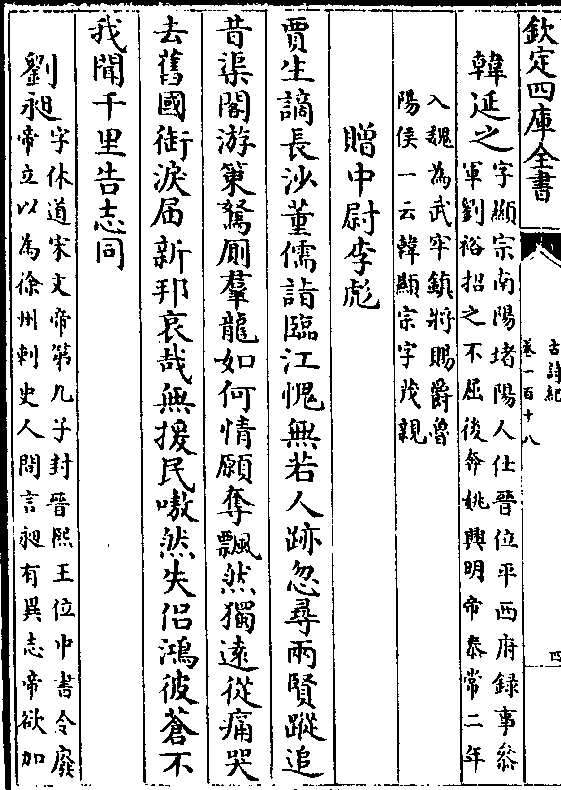 欽定四庫全書
古詩紀
卷一百十八
四
韓延之
字顯宗南陽堵陽人仕晉位平西府錄事叅
軍劉裕招之不屈後奔姚興明帝泰常二年
入魏為武牢鎮將賜爵魯
陽侯一云韓顯宗字茂親
贈中尉李彪
賈生謫長沙董儒詣臨江愧無若人跡忽尋兩賢蹤追
昔渠閣游策駑厠羣龍如何情願奪飄然獨遠從痛哭
去舊國銜淚届新邦哀哉無援民嗷然失侣鴻彼蒼不
我聞千里告志同
劉昶
字休道宋文帝第九子封晉熙王位中書令廢
帝立以為徐州刺史人間言昶有異志帝欲加